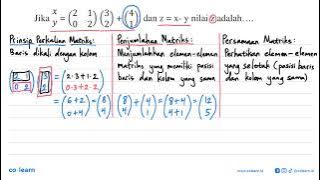 Jika (x y) = (2 1 0 2)(3 2) + (4 1) dan z = x- y nilai z adalah....
Prinsip Perkalian Matriks:
Baris dikali dengan kolom
(2 1 0 2) (3 2) = (2·3+1·2 0·3+2·2)
= (6+2 0+4) = (8 4)
Penjumlahan Matriks:
Menjumlahkan elemen-elemen
matriks yang memiliki posisi
baris dan kolom yang sama
(8 4) + (4 1) = (8+4 4+1) = (12 5)
Persamaan Matriks:
Perhatikan elemen-elemen
yang seletak (posisi baris
dan kolom yang sama)
co·learn